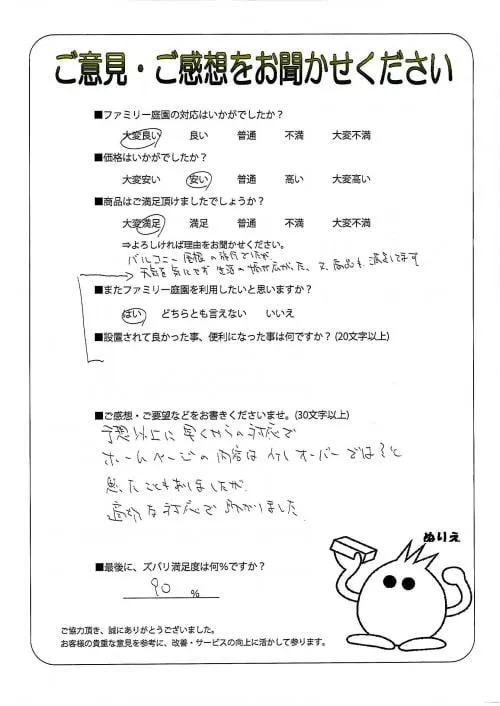 ご意見・ご感想をお聞かせください
■ファミリー庭園の対応はいかがでしたか？
大変良い 良い 普通 不満 大変不満
■価格はいかがでしたか？
大変安い 安い 普通 高い 大変高い
■商品はご満足頂けましたでしょうか？
大変満足 満足 普通 不満 大変不満
⇒よろしければ理由をお聞かせください。
バルコニー屋根の設置ですが
天気を気にせず生活の幅が広がった、又、商品も満足してます
■またファミリー庭園を利用したいと思いますか？
はい どちらとも言えない いいえ
■設置されて良かった事、便利になった事は何ですか？(20文字以上)
■ご感想・ご要望などをお書きくださいませ。(30文字以上)
予想以上に早くからの対応で
ホームページの内容は少しオーバーでは？と
思ったこともありましたが
適切な対応で助かりました
ぬりえ
■最後に、ズバリ満足度は何％ですか？
90 %
ご協力頂き、誠にありがとうございました。
お客様の貴重な意見を参考に、改善・サービスの向上に活かして参ります。